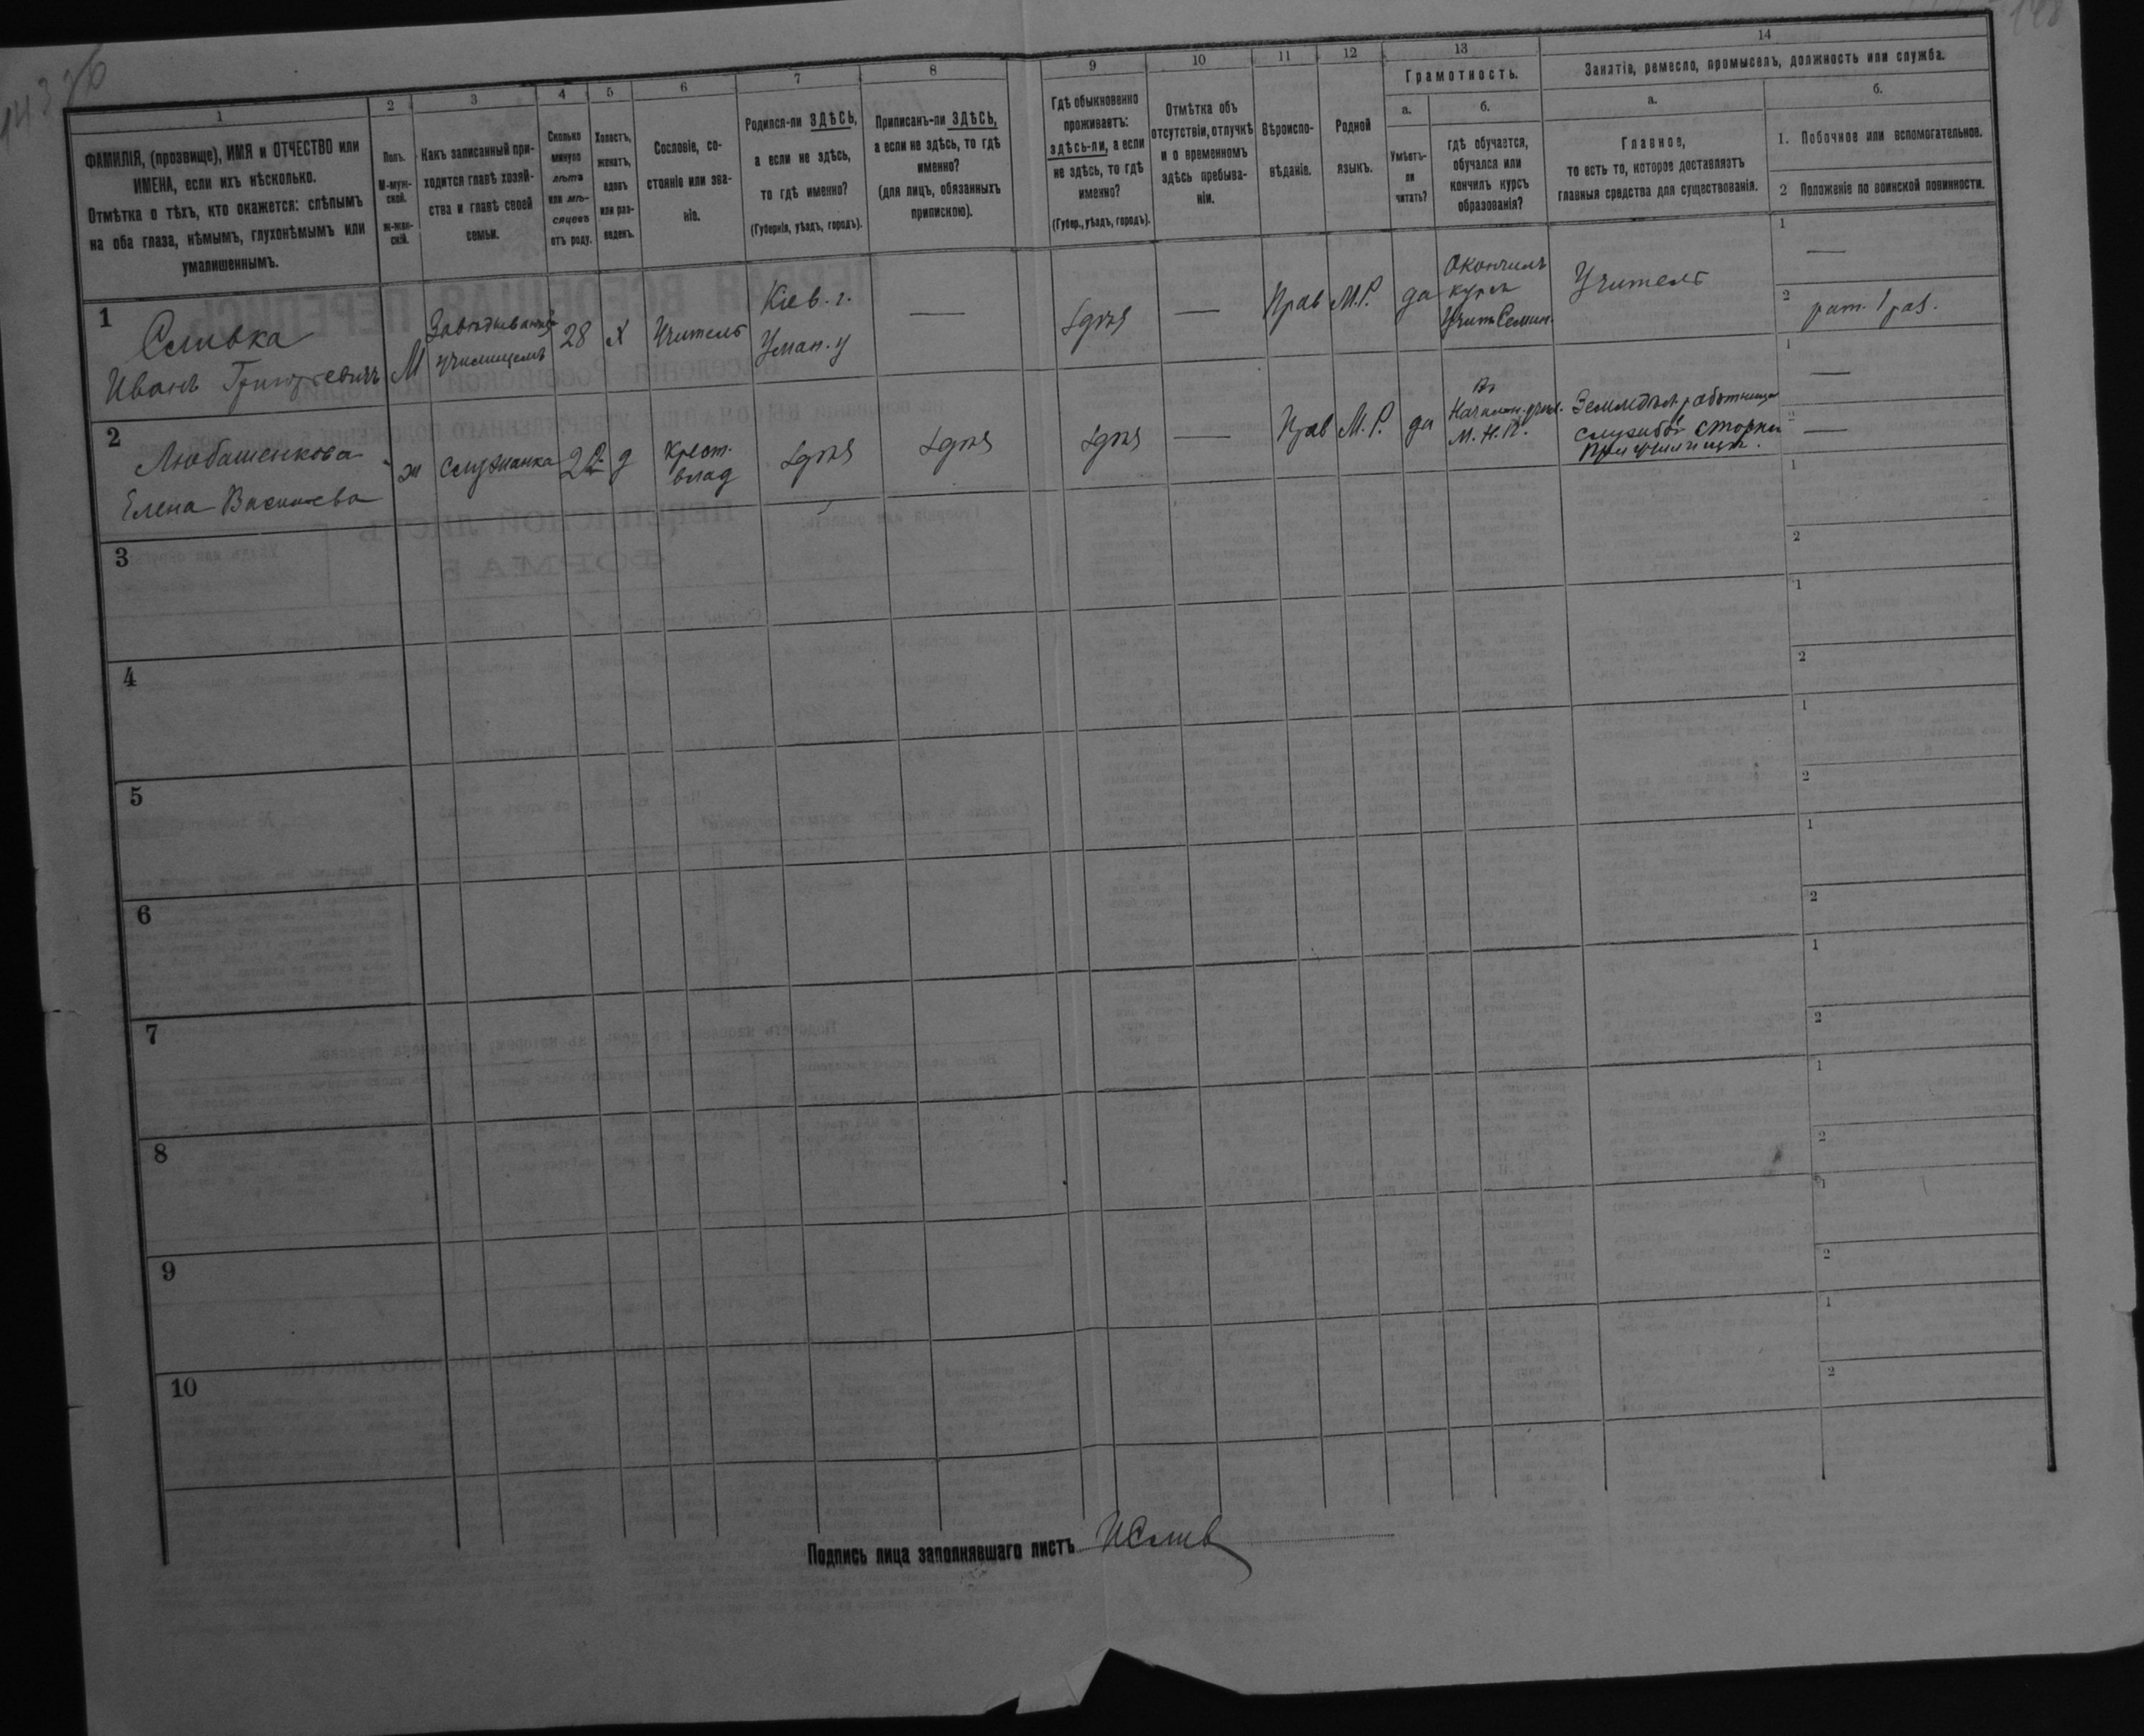 1
2
3
4
5
6
7
8
9
10
11
12
13
14
ФАМИЛІЯ, (прозвище), ИМЯ и ОТЧЕСТВО или
ИМЕНА, если ихъ нѣсколько.
Отмѣтка о тѣхъ, кто окажется: слѣпымъ
на оба глаза, нѣмымъ, глухонѣмымъ или
умалишеннымъ.
Полъ.
М-муж-
ской.
Ж-жен-
скій.
Какъ записанный при-
ходится главѣ хозяй-
ства и главѣ своей
семьи.
Сколько
минуло
лѣтъ
или мѣ-
сяцевъ
отъ роду.
Холостъ,
женатъ,
вдовъ
или раз-
веденъ.
Сословіе, со-
стояніе или зва-
ніе.
Родился-ли ЗДѢСЬ,
а если не здѣсь,
то гдѣ именно?
(Губернія, уѣздъ, городъ).
Приписанъ-ли ЗДѢСЬ,
а если не здѣсь, то гдѣ
именно?
(для лицъ, обязанныхъ
припискою).
Гдѣ обыкновенно
проживаетъ:
здѣсь-ли, а если
не здѣсь, то гдѣ
именно?
(Губер., уѣздъ, городъ).
Отмѣтка объ
отсутствіи, отлучкѣ
и о временномъ
здѣсь пребыва-
ніи.
Вѣроиспо-
вѣданіе.
Родной
языкъ.
Грамотность.
а.
Умѣетъ-
ли
читать?
б.
гдѣ обучается,
обучался или
кончилъ курсъ
образованія?
Занятіе, ремесло, промыселъ, должность или служба.
а.
Главное,
то есть то, которое доставляетъ
главныя средства для существованія.
б.
1. Побочное или вспомогательное.
2 Положеніе по воинской повинности.
1
Сливка
Иванъ Григорьевичъ
М
Завѣдывающій
училищемъ
28
Х
Учитель
Кіев. г.
Уман. у
—
здѣсь
—
Прав
М.Р.
да
Окончилъ
курсъ
Учит. Семин.
Учитель
1
—
2
рат. 1 раз.
2
Любашенкова
Елена
ж
служанка
д
Крест.
влад
здѣсь
здѣсь
здѣсь
—
Прав
М.Р.
да
въ
Начальн. учил.
М. Н. П.
работница
при училищѣ.
1
—
2
—
3
1
2
4
1
2
5
1
2
6
1
2
7
1
2
8
1
2
9
1
2
10
1
2
Подпись лица заполнявшаго листъ ИСлив